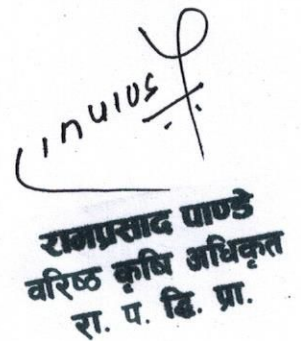 रामप्रसाद पाण्डे
वरिष्ठ कृषि अधिकृत
रा. प. द्वि. प्रा.